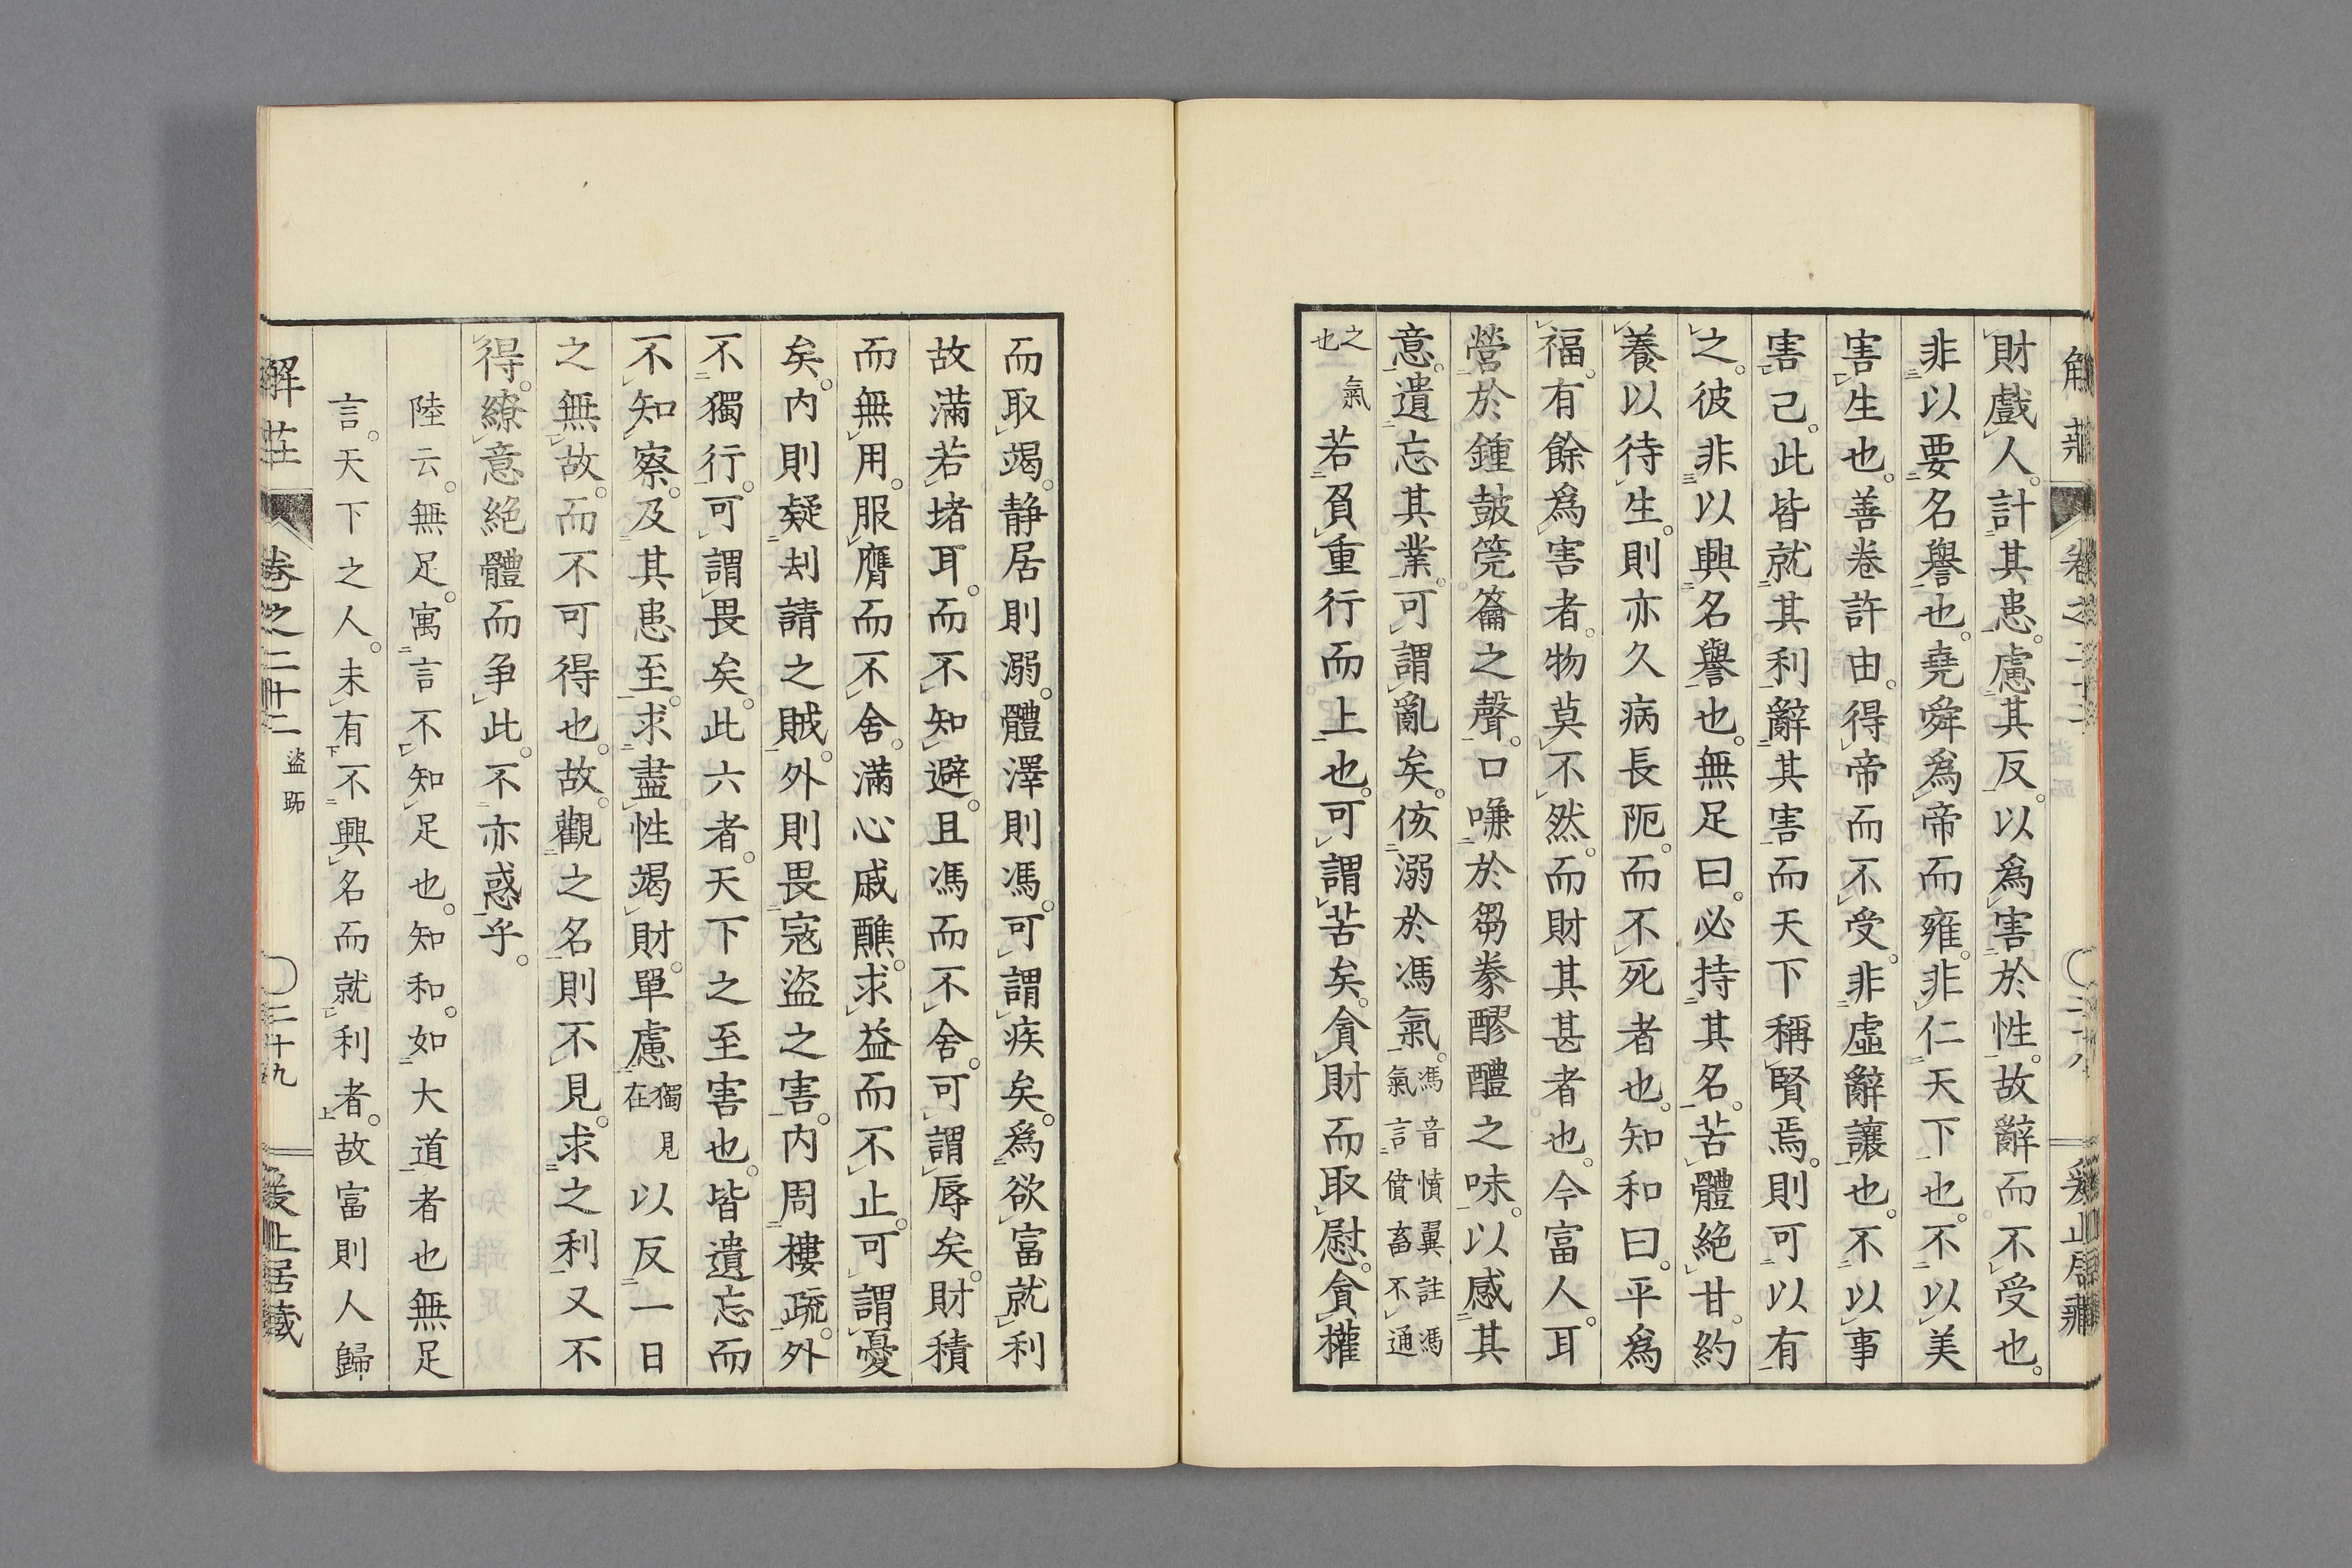 解莊 卷之二十二 二十八
財戲人。計其患。慮其反。以為害於性。故辭而不受也。
非以要名譽也。堯舜為帝而雍。非仁天下也。不以美
害生也。善卷許由。得帝而不受。非虛辭讓也。不以事
害己。此皆就其利辭其害而天下稱賢焉。則可以有
之。彼非以興名譽也。無足曰。必持其名。苦體絕甘。約
養以待生。則亦久病長阨。而不死者也。知和曰。平為
福。有餘為害者。物莫不然。而財其甚者也。今富人。耳
營於鍾鼓筦籥之聲。口嗛於芻豢醪醴之味。以感其
意。遺忘其業。可謂亂矣。侅溺於馮氣。馮音憤翼註馮氣言債畜不通
之氣也 若負重行而上也。可謂苦矣。貪財而取慰。貪權
而取竭。静居則溺。體澤則馮。可謂疾矣。為欲富就利
故滿若堵耳。而不知避。且馮而不舍。可謂辱矣。財積
而無用。服膺而不舍。滿心戚醮。求益而不止。可謂憂
矣。内則疑刦請之賊。外則畏寇盜之害。内周樓疏。外
不獨行。可謂畏矣。此六者。天下之至害也。皆遺忘而
不知察。及其患至。求盡性竭財。單慮獨見在以反一日
之無故。而不可得也。故觀之名則不見。求之利又不
得。繚意絕體而争此。不亦惑乎。
陸云。無足。寓言不知足也。知和。如大道者也無足
言。天下之人。未有不興名而就利者。故富則人歸
解莊 卷之二十二 盜跖 二十九 爰止居藏